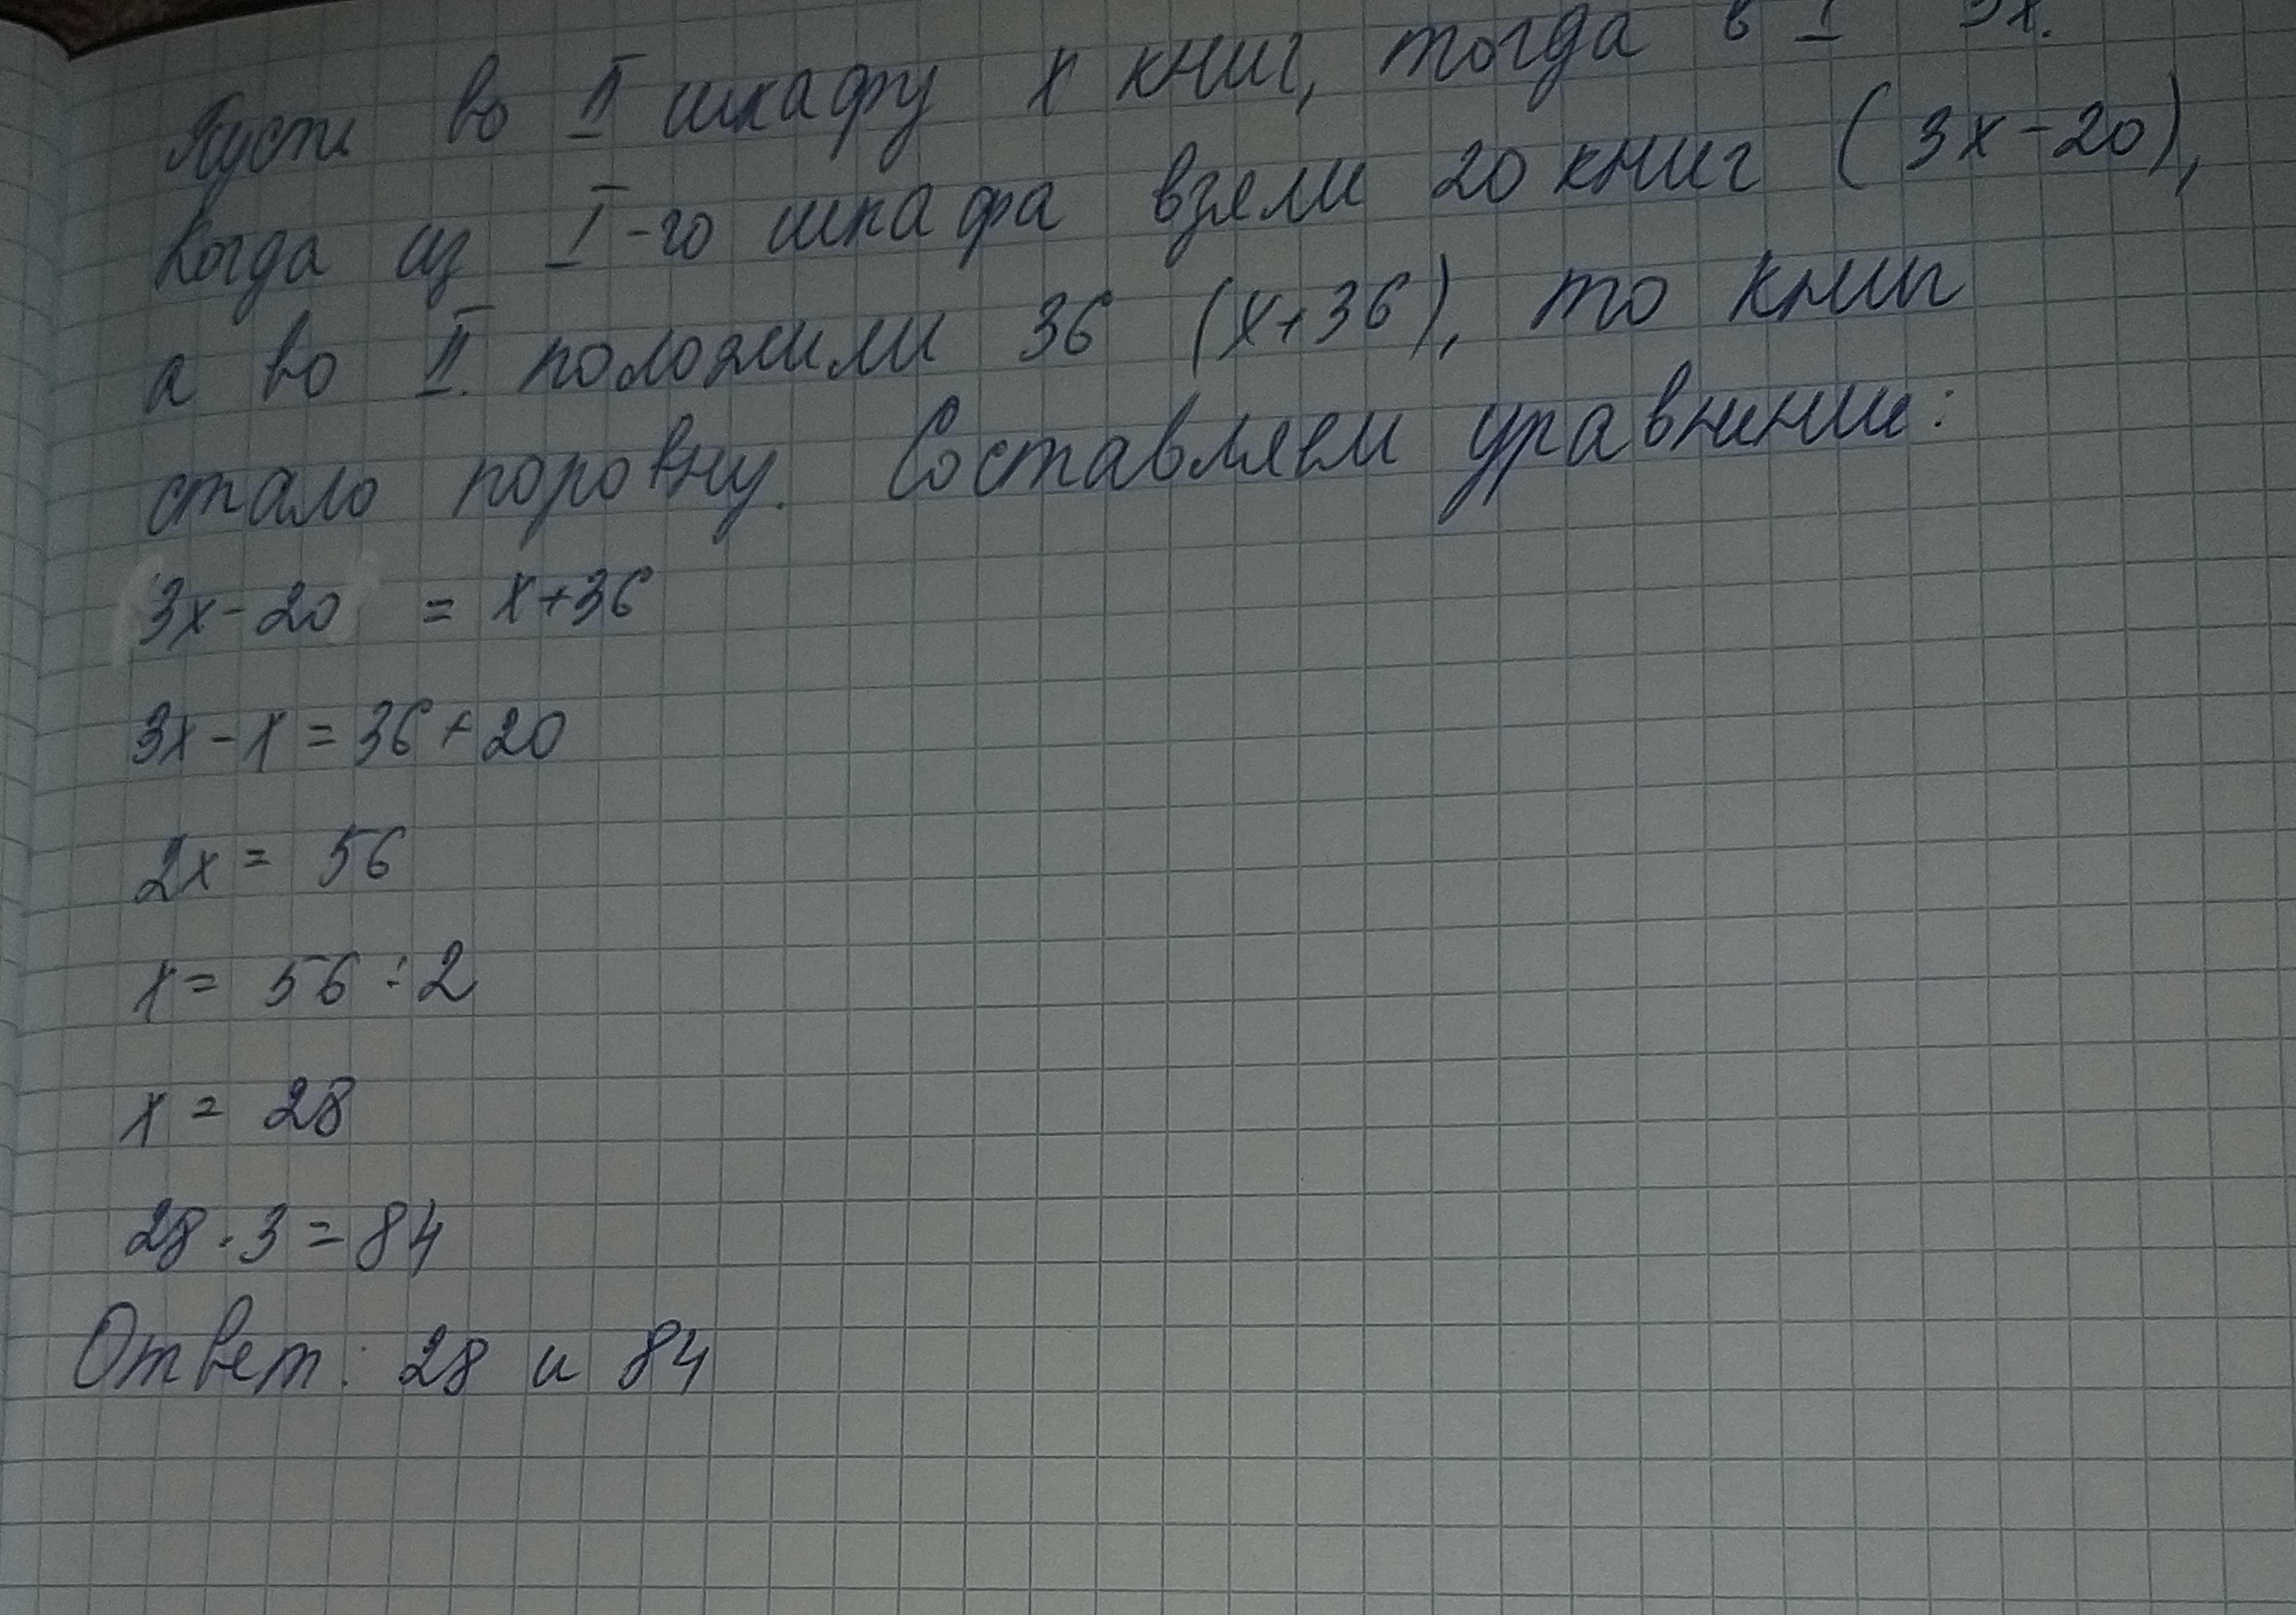 Пусть во II шкафу x книг, тогда в I 3x.
Когда из I-го шкафа взяли 20 книг (3x-20),
а во II. положили 36 (x+36), то книг
стало поровну. Составляем уравнение:
3x-20 = x+36
3x-x=36+20
2x= 56
x= 56÷2
x= 28
28·3=84
Ответ: 28 и 84